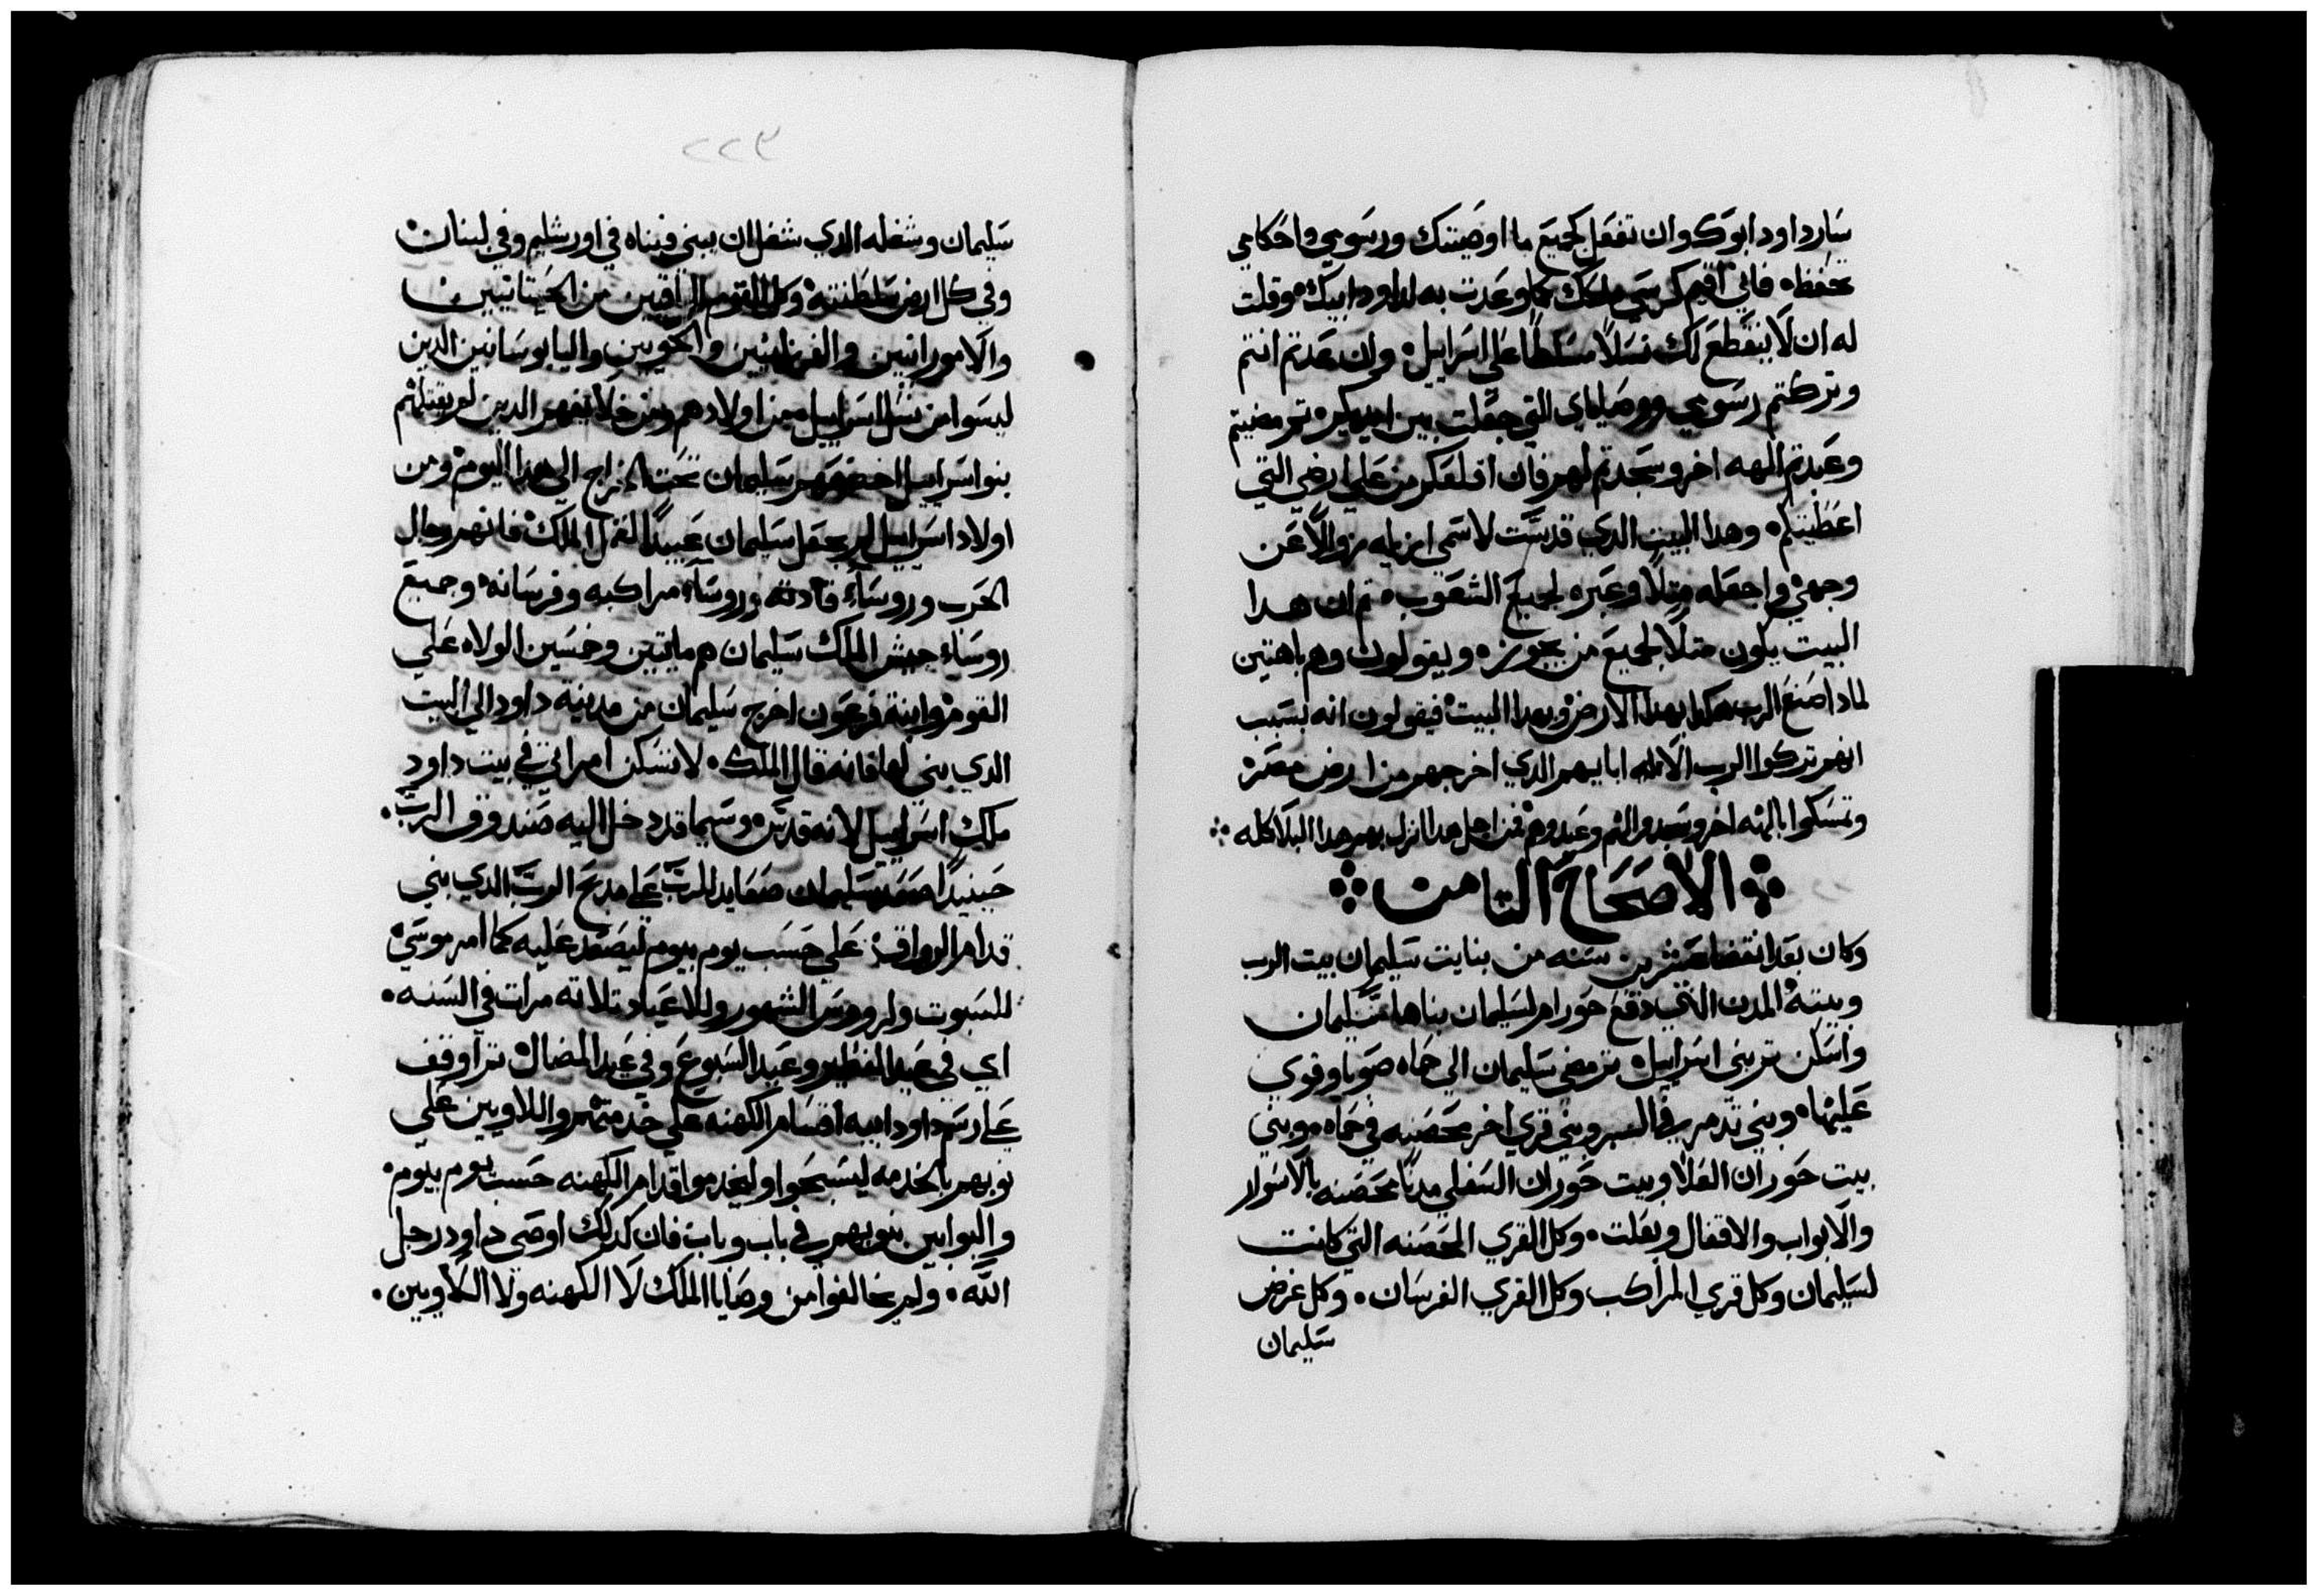 سار داود ابوك وان تفعل كجميع ما اوصيتك ورسومي واحكامي
تحفظه فاني اقيم كرسي ملكك كما وعدت به لداود ابيك وقلت
له ان لا ينقطع لك نسلاً مسلطاً علي اسراييل وان عدتم انتم
وتركتم رسومي ووصاياي التي جعلت بين ايديكم ثم مضيتم
وعبدتم الهه اخر وسجدتم لهم فان اقلعكم من علي ارضي التي
اعطيتكم وهدا البيت الدي قدست لاسمي ازيله زوالاً عن
وجهي واجعله مثلاً وعبره لجميع الشعوب ثم ان هدا
البيت يكون مثلاً لجميع من يجوزه ويقولون وهم باهتين
لمادا صنع الرب هكدا بهدا الارض وبهدا البيت فيقولون انه بسبب
انهم تركوا الرب الاله ابايهم الدي اخرجهم من ارض مصر
وتمسكوا بالهه اخر وسجدوا لهم وعبدوهم فمن اجل هدا انزل بهم هدا البلا كله
الاصحاح التامن
وكان بعد انقضا عشرين سنه من بنايت سليمان بيت الرب
وبيته المدن التي دفع حورام لسليمان بناها سليمان
واسكن تم بني اسراييل ثم مضي سليمان الي حماه صوبا وقوي
عليها وبني تدمر في البر وبني قري اخر محصنه في حماه وبني
بيت حوران العلا وبيت حوران السفلي مدناً محصنه بالاسوار
والابواب والاقفال وبعلت وكل القري المحصنه التي كانت
لسليمان وكل قري المراكب وكل القري الفرسان وكل غرض
سليمان
٢٢٣
سليمان وشغله الدي شغل ان يبني فبناه في اورشليم وفي لبنان
وفي كل ارض سلطنته وكل القوم الباقيين من الحيتانيين
والامورانيين والفرزانيين والحويين واليابوسانيين الدين
ليسوا من نسل اسراييل من اولادهم ومن خلايفهم الدين لم يقتلهم
بنو اسراييل اخضعهم سليمان تحت الخراج الي هدا اليوم ومن
اولاد اسراييل لم يجعل سليمان عبيداً لعمل الملك فانهم رجال
الحرب وروساء قادته وروساء مراكبه وفرسانه وجميع
روساء جيش الملك سليمان هم مايتين وخمسين الولاه علي
القوم وابنة فرعون اخرج سليمان من مدينة داود الي البيت
الدي بني لها فانه قال الملك لا تسكن امراتي في بيت داود
ملك اسراييل لانه قدس وسيما قد دخل اليه صندوق الرب
حينيداً اصعد سليمان صعايد للرب علي مدبح الرب الدي بني
قدام الرواق علي حسب يوم بيوم ليصعد عليه كما امر موسي
للسبوت ولروس الشهور وللاعياد تلاته مرات في السنه
اي في عيد الفطير وعيد السبوع وفي عيد المضال تم اوقف
علي رسم داود ابيه اقسام الكهنه علي خدمتهم واللاويين علي
نوبهم بالخدمه ليسبحوا وليخدموا قدام الكهنه حسب يوم بيوم
والبوابين بنوبهم في باب وباب فان كدلك اوصي داود رجل
الله ولم يخالفوا من وصايا الملك لا الكهنه ولا اللاويين